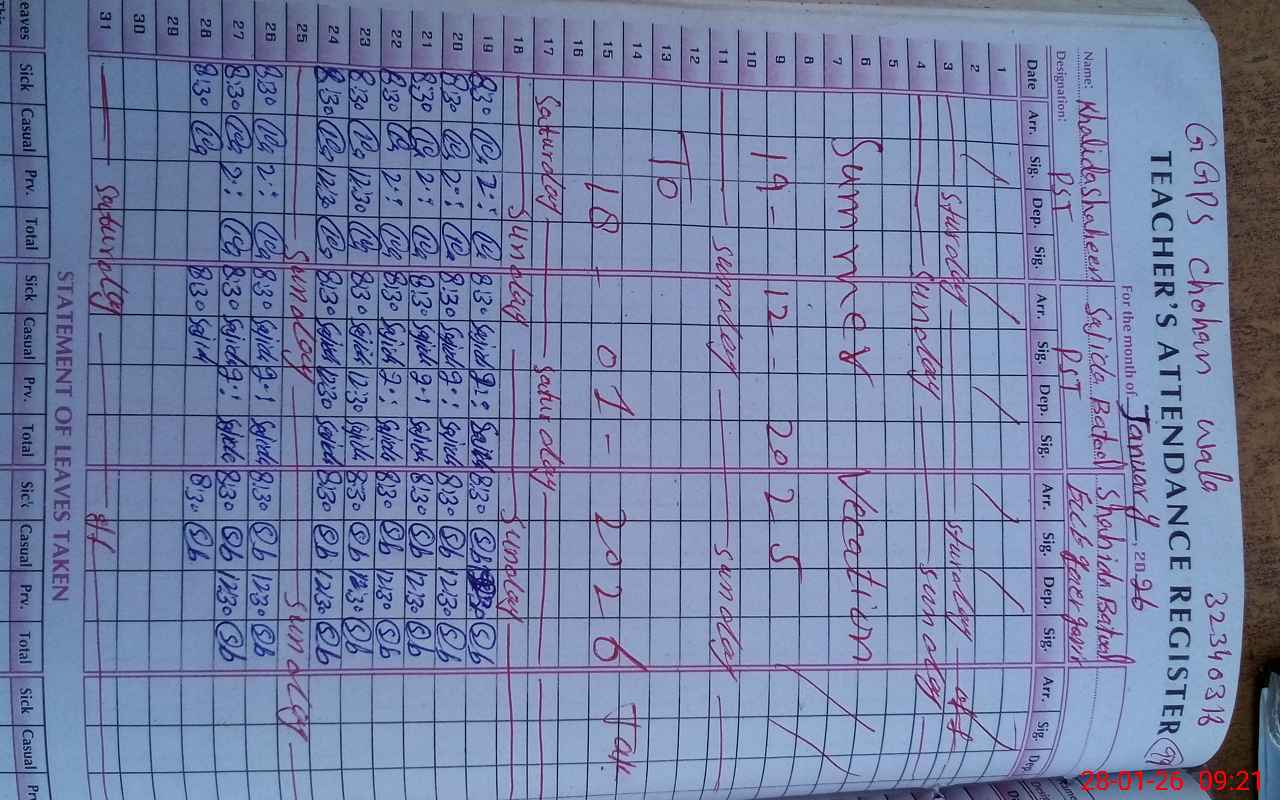 GGPS Chohan wala 32340318
TEACHER'S ATTENDANCE REGISTER
For the month of January, 2026
Name: Khalida Shaheen Sajida Batool Shahida Batool
Designation: PST PST
Date Arr. Sig. Dep. Sig. Arr. Sig. Dep. Sig. Arr. Sig. Dep. Sig. Arr. Sig. Dep.
1
2
3 sturday sturday off
4 Sunday sunday
5
6 Summer Vecation
7
8
9 19-12-2025
10
11 sunday sunday
12
13 To
14
15 18-01-2026 Tak
16
17 Saturday saturday
18 Sunday Sunday
19 8:30 2:: 8:30 Sajida 2:: Sajida 8:30 Sb 12:30 Sb
20 8:30 2:: 8:30 Sajida 2:: Sajida 8:30 Sb 12:30 Sb
21 8:30 2:: 8:30 Sajida 2:: Sajida 8:30 Sb 12:30 Sb
22 8:30 2:: 8:30 Sajida 2:: Sajida 8:30 Sb 12:30 Sb
23 8:30 12:30 8:30 Sajida 12:30 Sajida 8:30 Sb 12:30 Sb
24 8:30 12:30 8:30 Sajida 12:30 Sajida 8:30 Sb 12:30 Sb
25 Sunday Sunday
26 8:30 2:: 8:30 Sajida 2:: Sajida 8:30 Sb 12:30 Sb
27 8:30 2:: 8:30 Sajida 2:: Sajida 8:30 Sb 12:30 Sb
28 8:30 8:30 Sajida 8:30 Sb
29
30
31 Saturday off
STATEMENT OF LEAVES TAKEN
eaves Sick Casual Prv. Total Sick Casual Prv. Total Sick Casual Prv. Total Sick Casual Prv
28-01-26 09:21